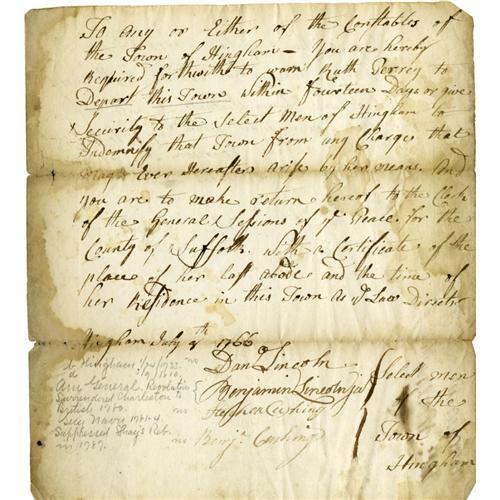 To any or Either of the Constables of
the Town of Hingham – You are hereby
Required forthwith to warn Ruth Perrey to
Depart this Town within fourteen Days or give
Security to the Select Men of Hingham to
Indemnify that Town from any Charge that
may Ever Hereafter arise by her means. And
you are to make return hereof to the Clerk
of the General Sessions of ye Peace for the
County of Suffolk with a Certificate of the
place of her last abode and the time of
her Residence in this Town as ye Law Directs
Hingham July 1766
Danl Lincoln
Benjamin Lincoln jr
Stephen Cushing
Benja Cushing
Select men
of
the
Town of
Hingham
b Hingham 1/24/1733
d 1810.
Am General, Revolution
Surrendered Charleston to
British 1780.
Secy War 1781-4.
Suppressed Shay's Reb.
in 1787.